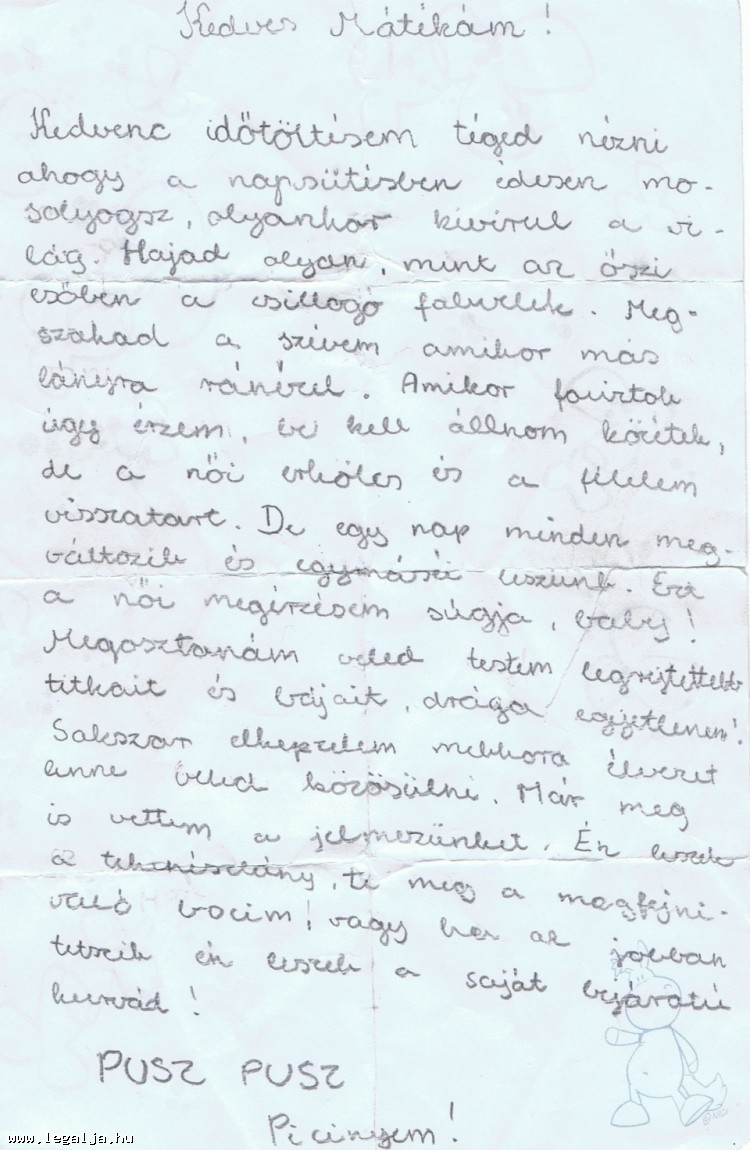 Kedves Mátikám!
Kedvenc időtöltésem téged nézni
ahogy a napsütésben édesen mo-
solyogsz, olyankor kivirul a vi-
lág. Hajad olyan, mint az őszi
esőben a csillogó falevelek. Meg-
szakad a szívem amikor más
lányra ránézel. Amikor
úgy érzem, be kell állnom közétek,
de a női erkölcs és a félelem
visszatart. De egy nap minden meg-
változik és egymáséi leszünk. Ezt
a női megérzésem súgja, baby!
Megosztanám veled testem legrejtettebb
titkait és bájait, drága egyetlenem!
Sokszor elképzelem mekkora élvezet
lenne veled közösülni. Már meg
is vettem a jelmezünket. Én leszek
a tehénislány, te meg a megfejni-
való bocim! vagy ha az jobban
tetszik én leszek a saját bejáratú
kurvád!
PUSZ PUSZ
Picinyem!
www.legalja.hu